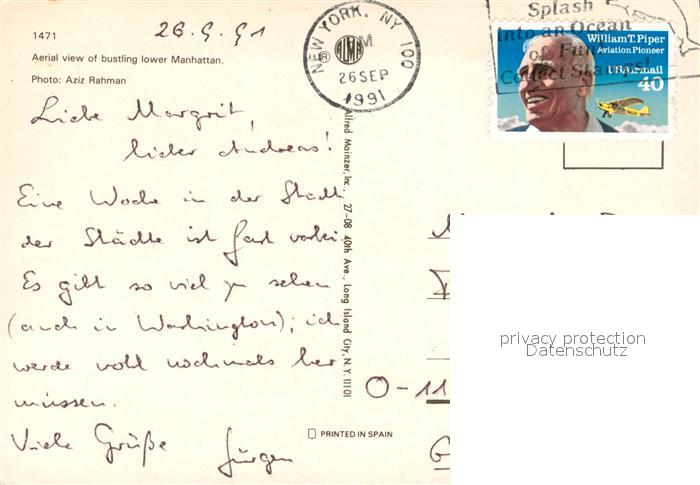 1471
26.9.91
Aerial view of bustling lower Manhattan.
Photo: Aziz Rahman
NEW YORK, NY 100
26 SEP
1991
Splash
Into an Ocean
of Fun!
Collect Stamps!
William T. Piper
Aviation Pioneer
USAirmail
40
Liebe Margrit,
lieber Andreas!
Eine Woche in der Stadt
der Städte ist fast vorbei.
Es gibt so viel zu sehen
(auch in Washington); ich
werde wohl nochmals her
müssen.
Viele Grüße Jürgen
Alfred Mainzer, Inc., 27-08 40th Ave., Long Island City, N.Y. 11101
PRINTED IN SPAIN
O-11
G
privacy protection
Datenschutz